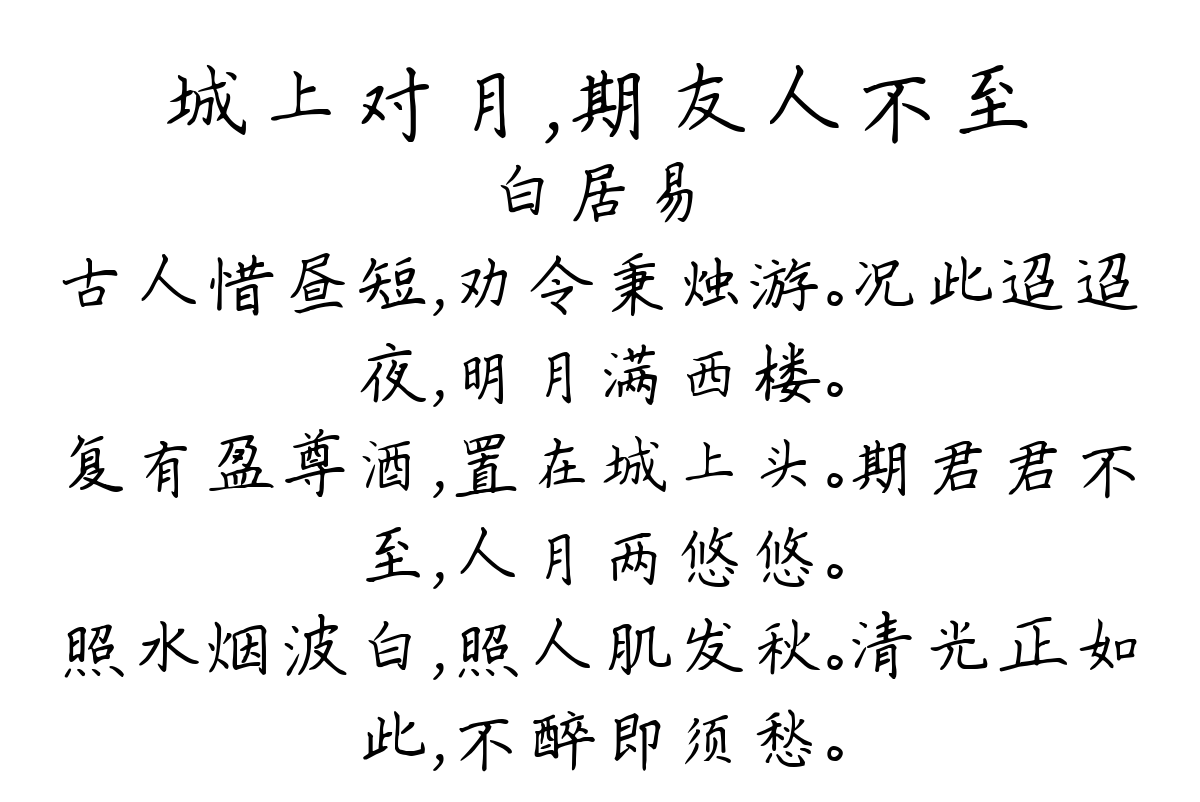 城上对月,期友人不至
白居易
古人惜昼短,劝令秉烛游。况此迢迢
夜,明月满西楼。
复有盈尊酒,置在城上头。期君君不
至,人月两悠悠。
照水烟波白,照人肌发秋。清光正如
此,不醉即须愁。